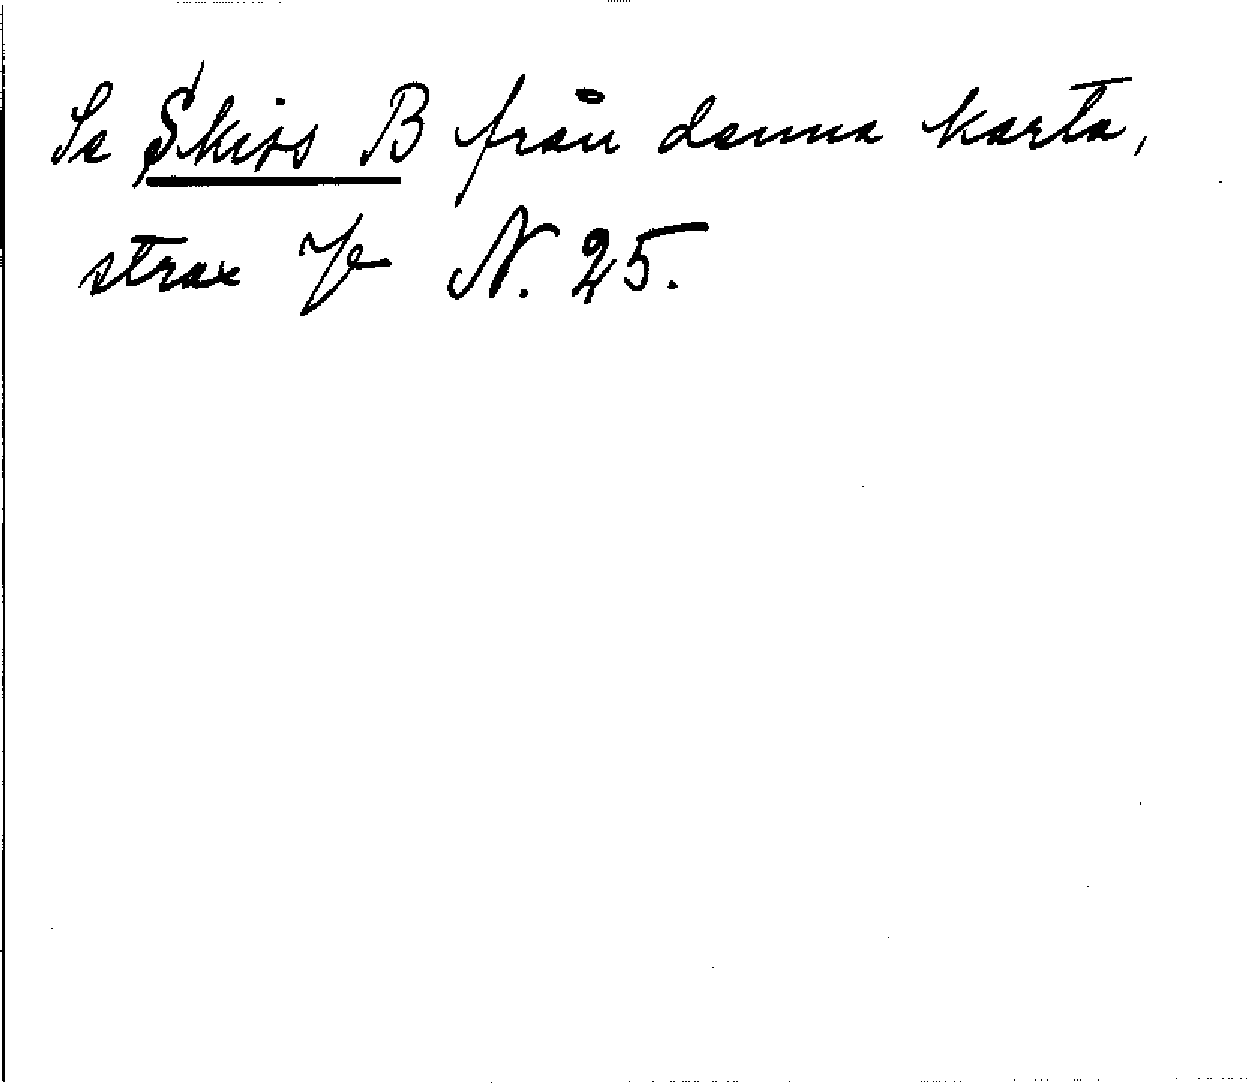 Se Skiss B från denna karta,
strax fr N. 25.